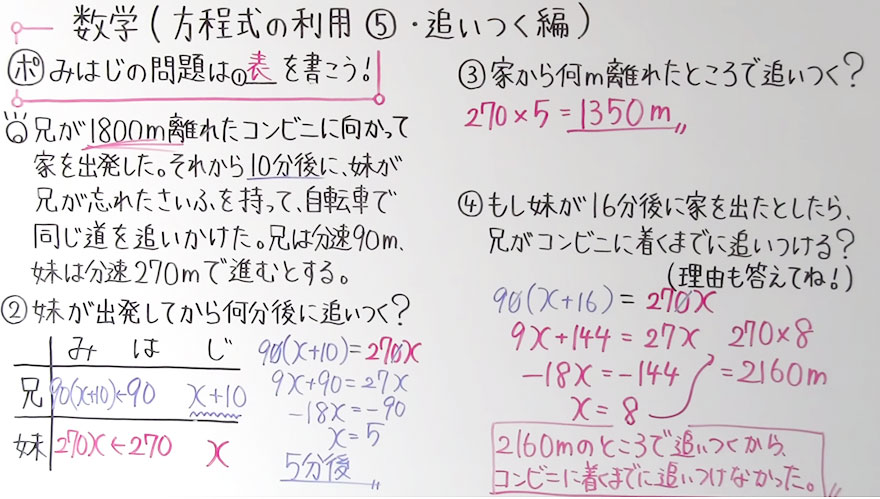 数学(方程式の利用⑤・追いつく編)
ポ みはじの問題は①表を書こう!
兄が1800m離れたコンビニに向かって
家を出発した。それから10分後に、妹が
兄が忘れたさいふを持って、自転車で
同じ道を追いかけた。兄は分速90m、
妹は分速270mで進むとする。
②妹が出発してから何分後に追いつく?
み は じ
兄 90(x+10)←90 x+10
妹 270x←270 x
90(x+10)=270x
9x+90=27x
-18x=-90
x=5
5分後
③家から何m離れたところで追いつく?
270×5=1350m
④もし妹が16分後に家を出たとしたら、
兄がコンビニに着くまでに追いつける?
(理由も答えてね!)
90(x+16)=270x
9x+144=27x
-18x=-144
x=8
270×8
=2160m
2160mのところで追いつくから、
コンビニに着くまでに追いつけなかった。